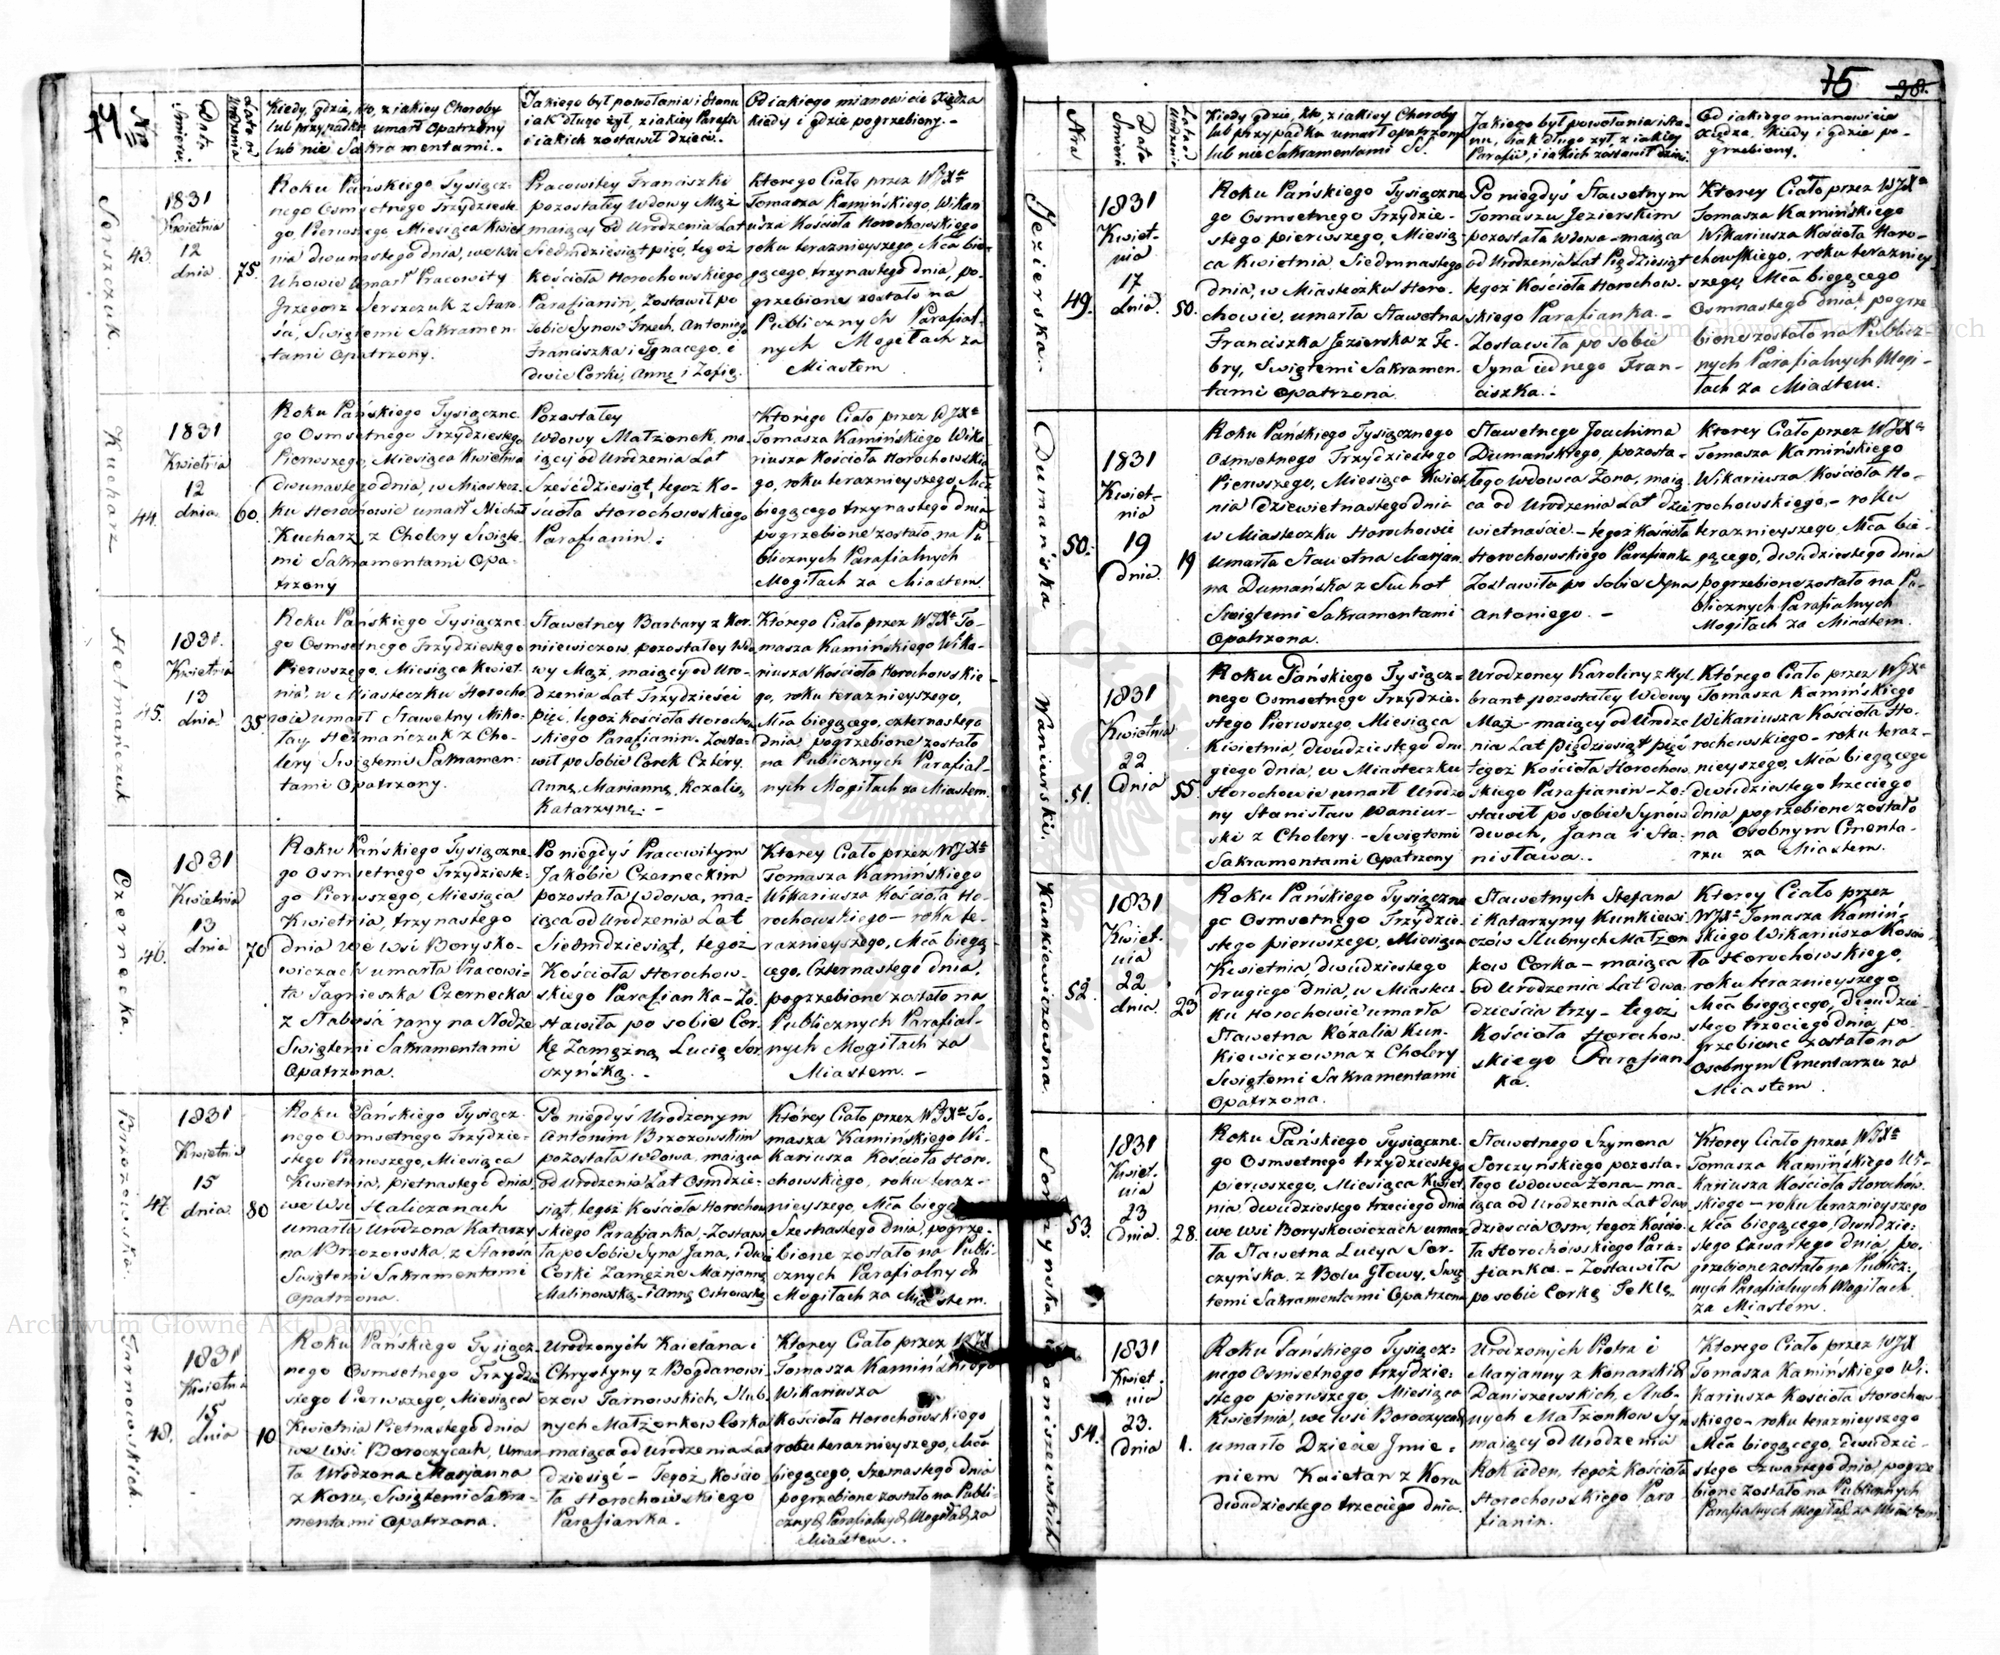 74
Nro
Data Śmierci
Lata od Urodzenia
Kiedy, gdzie, kto, z iakiey Choroby
lub przypadku umarł Opatrzony
lub nie Sakramentami.
Jakiego był powołania i Stanu
iak długo żył, z iakiey Parafii
i iakich zostawił dzieci.
Od iakiego mianowicie Xiędza
kiedy i gdzie pogrzebiony.
Serszczuk.
43.
1831
Kwietnia
12
dnia
75.
Roku Pańskiego Tysiącz-
nego Osmsetnego Trzydzieste-
go Pierwszego, Miesiąca Kwiet
nia dwunastego dnia, we wsi
Uhowie umarł Pracowity
Grzegorz Serszczuk z Staro-
ści, Swiętemi Sakramen-
tami Opatrzony.
Pracowitey Franciszki
pozostałey Wdowy Mąż
maiący od Urodzenia Lat
Siedmdziesiąt pięć, tegoż
Kościoła Horochowskiego
Parafianin, Zostawił po
sobie Synow Trzech, Antoniego
Franciszka i Ignacego, i
dwie Corki, Annę i Zofię.
Ktorego Ciało przez WJXa
Tomasza Kamińskiego, Wikar
iusza Kościoła Horochowskiego
roku teraznieyszego, Mca bie-
gącego, trzynastego dnia, po-
grzebione zostało na
Publicznych Parafial-
nych Mogiłach za
Miastem
Kucharz
44.
1831
Kwietnia
12
dnia
60.
Roku Pańskiego Tysiączne
go Osmsetnego Trzydziestego
Pierwszego, Miesiąca Kwietnia
dwunastego dnia, w Miastecz-
ku Horochowie umarł Michał
Kucharz, z Cholery Swięte-
mi Sakramentami Opa-
trzony
Pozostałey
Wdowy Małzonek, ma-
iący od Urodzenia Lat
Sześćdziesiąt, tegoż Ko-
scioła Horochowskiego
Parafianin.
Ktorego Ciało przez WJXa
Tomasza Kamińskiego Wika
riusza Kościoła Horochowskie
go, roku teraznieyszego, Mca
biegącego trzynastego dnia
pogrzebione zostało, na Pu
blicznych Parafialnych
Mogiłach za Miastem
Hetmańczuk
45.
1831.
Kwietnia
13
dnia.
35.
Roku Pańskiego Tysiączne-
go Osmsetnego Trzydziestego
Pierwszego, Miesiąca Kwiet-
nia, w Miasteczku Horocho
wie umarł Sławetny Miko-
łay Hetmańczuk z Cho-
lery Swiętemi Sakramen-
tami Opatrzony.
Sławetney Barbary z Kor-
niiewiczow, pozostałey Wdo
wy Mąż, maiący od Uro-
dzenia Lat Trzydzieści
pięć, tegoż Kościoła Horochow
skiego Parafianin. Zosta-
wił po Sobie Corek Cztery.
Annę, Mariannę, Rozalię,
Katarzynę.
Którego Ciało przez WJXa To-
masza Kamińskiego Wika-
riusza Kościoła Horochowskie-
go, roku teraznieyszego,
Mca biegącego, czternastego
dnia, pogrzebione zostało
na Publicznych Parafial-
nych Mogiłach za Miastem.
Czernecka.
46.
1831
Kwietnia
13
dnia
70
Roku Pańskiego Tysiączne-
go Osmsetnego Trzydzieste-
go Pierwszego, Miesiąca
Kwietnia, trzynastego
dnia we wsi Borysko-
wiczach umarła Pracowi-
ta Jagnieszka Czernecka
z Słabości rany na Nodze
Swiętemi Sakramentami
Opatrzona.
Po niegdyś Pracowitym
Jakóbie Czerneckim
pozostała Wdowa, ma-
iąca od Urodzenia Lat
Siedmdziesiąt, tegoż
Kościoła Horochow-
skiego Parafianka - Zo-
stawiła po sobie Cor-
kę Zamężną Lucię Sor-
czyńską.
Ktorey Ciało przez WJXa
Tomasza Kamińskiego
Wikariusza Kościoła Ho-
rochowskiego - roku te-
raznieyszego, Mca biegą-
cego, Czternastego dnia,
pogrzebione zostało na
Publicznych Parafial-
nych Mogiłach za
Miastem. -
Brzozowska.
47.
1831
Kwietnia
15
dnia
80
Roku Pańskiego Tysiącz-
nego Osmsetnego Trzydzie-
stego Pierwszego, Miesiąca
Kwietnia, pietnastego dnia,
we wsi Haliczanach
umarła Urodzona Katarzy
na Brzozowska, z Starości
Swiętemi Sakramentami
Opatrzona.
Po niegdyś Urodzonym
Antonim Brzozowskim
pozostała Wdowa, maiąca
od Urodzenia Lat Osmdzie-
siąt, tegoż Kościoła Horochow
skiego Parafianka, Zostawi
ła po Sobie Syna Jana, i dwie
Corki Zamężne Mariannę
Malinowską - i Annę Ostrowską
Którey Ciało przez WJXa To-
masza Kamińskiego Wi-
kariusza Kościoła Horo-
chowskiego, roku teraz-
nieyszego, Mca biegą
Szesnastego dnia, pogrze-
bione zostało na Publi-
cznych Parafialnych
Mogiłach za Miastem.
Tarnowskich.
48.
1831
Kwietnia
15
dnia
10
Roku Pańskiego Tysiącz-
nego Osmsetnego Trzydzie
siego Pierwszego, Miesiąca
Kwietnia Pietnastego dnia
we wsi Boroczycach, umar
ła Urodzona Maryanna
z Koru, Swiętemi Sakra-
mentami Opatrzona.
Urodzonych Kaietana i
Chrystyny z Bogdanowi-
czow Tarnowskich, Slub-
nych Małżonkow Corka
maiąca od Urodzenia Lat
dziesięć - Tegoż Kościo-
ła Horochowskiego
Parafianka.
Ktorey Ciało przez WJX
Tomasza Kamińskiego
Wikariusza
Kościoła Horochowskiego
roku teraznieyszego, Mca
biegącego, Szesnastego dnia
pogrzebione zostało na Publi-
cznych Parafialnych Mogiłach za
Miastem.
75
38.
Nro
Data Śmierci
Lata od Urodzenia
Kiedy gdzie, kto, z iakiey Choroby
lub przypadku umarł opatrzony
lub nie Sakramentami SS.
Jakiego był powołania i sta-
nu, iak długo żył, z iakiey
Parafii, i iakich zostawił dzieci.
Od iakiego mianowicie
Xiędza, Kiedy i gdzie po-
grzebiony.
Jezierska.
49.
1831
Kwiet-
nia
17
dnia.
50.
Roku Pańskiego Tysiączne
go Osmsetnego Trzydzie-
stego pierwszego, Miesią-
ca Kwietnia, Siedmnastego
dnia, w Miasteczku Horo-
chowie, umarła Sławetna
Franciszka Jezierska z Fe-
bry, Swiętemi Sakramen-
tami Opatrzona.
Po niegdyś Sławetnym
Tomaszu Jezierskim
pozostała Wdowa - maiąca
od Urodzenia Lat Pięćdziesiąt
tegoż Kościoła Horochow-
skiego Parafianka. -
Zostawiła po sobie
Syna iednego Fran-
ciszka. -
Ktorey Ciało przez WJXa
Tomasza Kamińskiego
Wikariusza Kościoła Horo-
chowskiego, roku teraznie-
szego, Mca biegącego
Osmnastego dnia, pogrze
bione zostało na Publicz-
nych Parafialnych Mogi-
łach za Miastem.
Dumańska
50.
1831
Kwiet-
nia
19
dnia.
19
Roku Pańskiego Tysiącznego
Osmsetnego Trzydziestego
Pierwszego, Miesiąca Kwiet
nia dziewietnastego dnia
w Miasteczku Horochowie
umarła Sławetna Maryan-
na Dumańska z Suchot
Swiętemi Sakramentami
Opatrzona.
Sławetnego Joachima
Dumańskiego, pozosta-
łego Wdowca Żona, maią-
ca od Urodzenia Lat dzie
wietnaście - tegoż Kościoła
Horochowskiego Parafianka
Zostawiła po sobie Syna
Antoniego. -
Ktorey Ciało przez WJXa
Tomasza Kamińskiego
Wikariusza Kościoła Ho-
rochowskiego, - roku
teraznieyszego, Mca bie-
gącego, dwudziestego dnia
pogrzebione zostało na Pu-
blicznych Parafialnych
Mogiłach za Miastem.
Waniurski.
51.
1831
Kwietnia
22
Dnia
55.
Roku Pańskiego Tysiącz-
nego Osmsetnego Trzydzie-
stego Pierwszego, Miesiąca
Kwietnia, dwudziestego dru
giego dnia, w Miasteczku
Horochowie umarł Urodzo
ny Stanisław Waniur-
ski z Cholery - Swiętemi
Sakramentami Opatrzony
Urodzoney Karoliny z Hyl
brant pozostałey Wdowy
Mąż - maiący od Urodze
nia Lat pięćdziesiąt pięć
tegoż Kościoła Horochow
skiego Parafianin - Zo-
stawił po sobie Synów
dwoch, Jana i Sta-
nisława.
Którego Ciało przez WJXa
Tomasza Kamińskiego
Wikariusza Kościoła Ho-
rochowskiego - roku teraz-
nieyszego, Mca biegącego
dwudziestego trzeciego
dnia pogrzebione zostało
na Osobnym Cmenta-
rzu za Miastem.
Kunkiewiczowna.
52.
1831
Kwiet-
nia
22
dnia.
23
Roku Pańskiego Tysiączne
go Osmsetnego Trzydzie-
stego pierwszego, Miesiąca
Kwietnia, dwudziestego
drugiego dnia, w Miastecz-
ku Horochowie umarła
Sławetna Rozalia Kun-
kiewiczowna z Cholery
Swiętemi Sakramentami
Opatrzona.
Sławetnych Stefana
i Katarzyny Kunkiewi
czow Slubnych Małżon
kow Corka - maiąca
od Urodzenia Lat dwa-
dzieścia trzy - tegoż
Kościoła Horochow-
skiego Parafian
ka.
Ktorey Ciało przez
WJXa Tomasza Kamiń-
skiego Wikariusza Kościo
ła Horochowskiego,
roku teraznieyszego
Mca biegącego, dwudzie
stego trzeciego dnia, po
grzebione zostało na
Osobnym Cmentarzu za
Miastem.
Sorczynska
53.
1831
Kwiet-
nia
23
dnia.
28.
Roku Pańskiego Tysiączne-
go Osmsetnego trzydziestego
pierwszego, Miesiąca Kwiet
nia, dwudziestego trzeciego dnia
we wsi Boryskowiczach umar
ła Sławetna Lucya Sor-
czyńska, z Bolu Głowy, Swię
temi Sakramentami Opatrzona
Sławetnego Szymona
Sorczyńskiego pozosta-
łego Wdowca Żona - ma-
iąca od Urodzenia Lat dwa
dzieścia Osm, tegoż Kościo-
ła Horochowskiego Para-
fianka. - Zostawiła
po sobie Corkę Teklę.
Ktorey Ciało przez WJXa
Tomasza Kamińskiego Wi-
kariusza Kościoła Horochow-
skiego - roku teraznieyszego
Mca biegącego, dwudzie-
stego Czwartego dnia, po-
grzebione zostało na Publicz-
nych Parafialnych Mogiłach
za Miastem.
Daniszewskich
54.
1831
Kwiet-
nia
23.
dnia
1.
Roku Pańskiego Tysiącz-
nego Osmsetnego trzydzie-
stego pierwszego, Miesiąca
Kwietnia, we wsi Boroczycach
umarło Dziecie Jmie-
niem Kaietan z Koru
dwudziestego trzeciego dnia.
Urodzonych Piotra i
Maryanny z Konarskich
Daniszewskich, Slub-
nych Małżonkow Syn
maiący od Urodzenia
Rok ieden, tegoż Kościoła
Horochowskiego Para
fianin.
Ktorego Ciało przez WJX
Tomasza Kamińskiego Wi-
kariusza Kościoła Horochow-
skiego - roku teraznieyszego
Mca biegącego, dwudzie-
stego Czwartego dnia pogrze
bione zostało na Publicznych
Parafialnych Mogiłach za Miastem
Archiwum Główne Akt Dawnych
Archiwum Główne Akt Dawnych